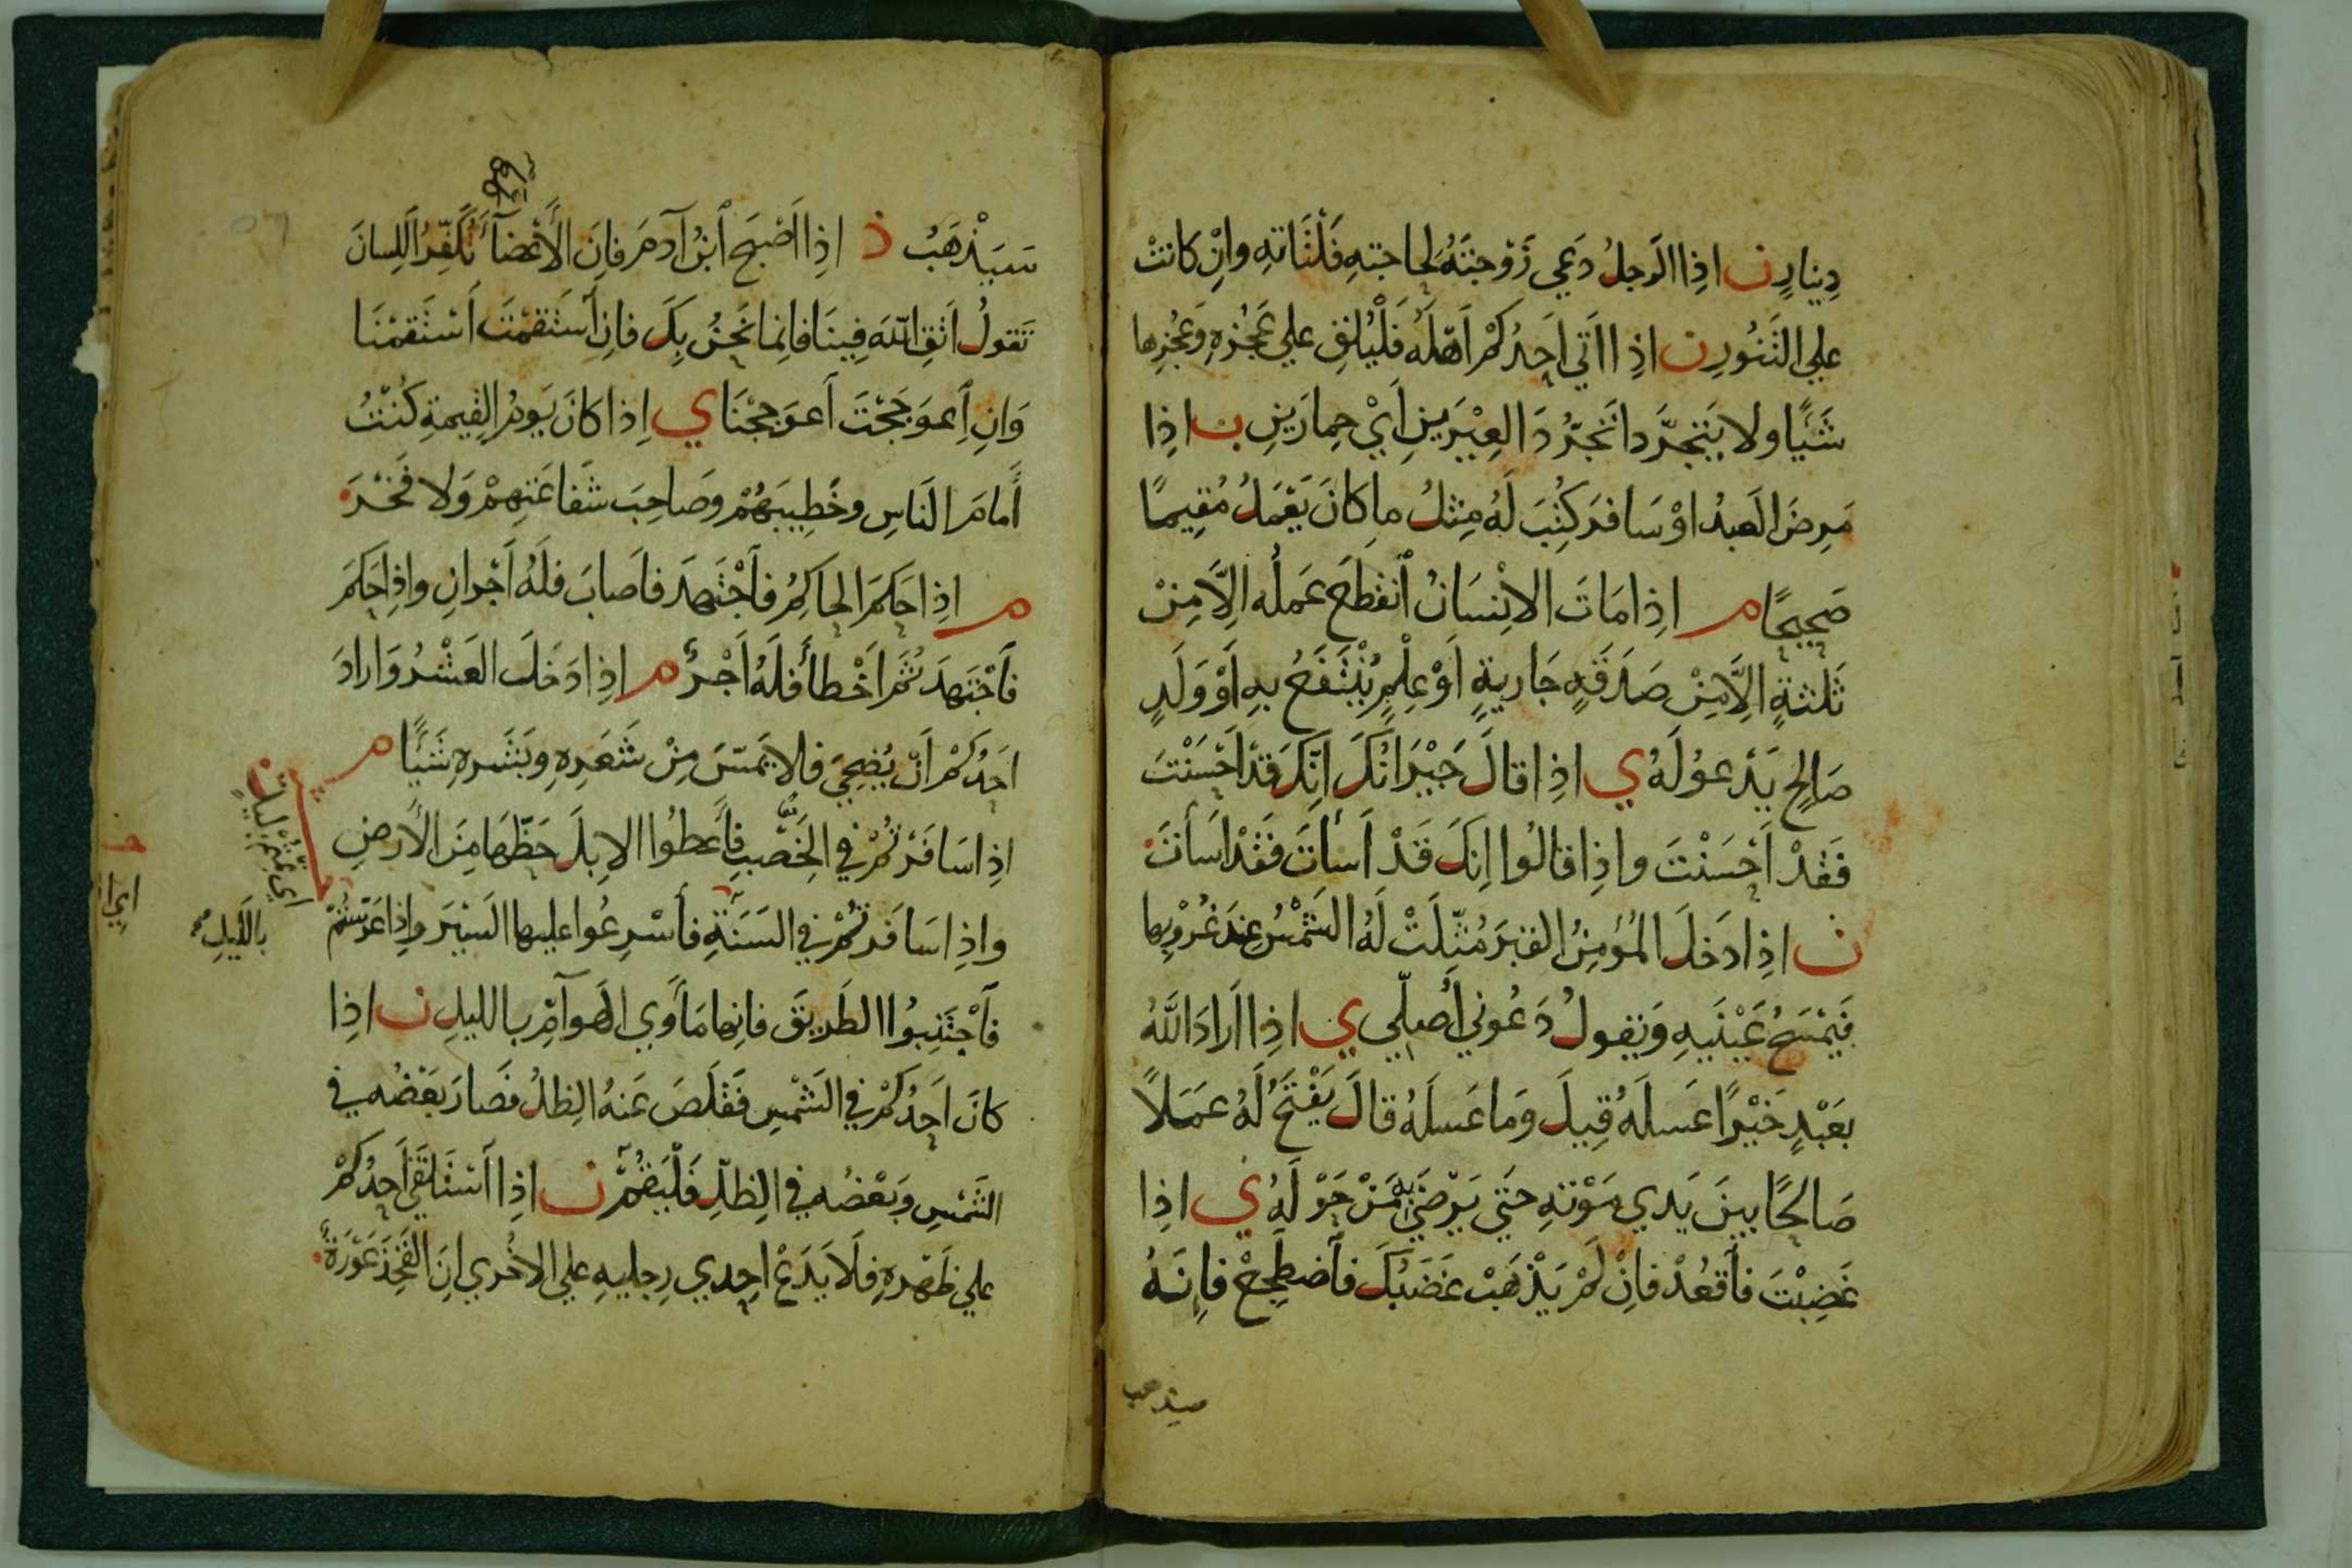 دِينارٍ ن اذِا الَرجلُ دَعي زَوْجَتَهُ لحاجتهِ فَلْتَاتهِ وانِ كانتْ
علي التَنُورِ ن اذِا اَتي اَحدُكمْ اَهْلَهُ فَلْيُلقِ علي عَجُزهِ وَعَجُزِها
شَيًا ولا يَتَجَرَّدا تَجَرُّدَ العِيْرَينِ اَيْ حِمارَينِ ب اذِا
مَرِضَ العبدُ اوْ سَافرَ كُتِبَ لَهُ مِثلُ ما كانَ يَعْمَلُ مُقِيمًا
صَحِيحًا م اذِا مَاتَ الاِنْسَانُ اَنقطَعَ عَملُه الِاَّ مِنْ
ثَلثةٍ الِاَّ مِنْ صَدَقَةٍ جَاريةٍ اَوْ عِلْمٍ يُنْتَفَعُ بهِ اَوْ وَلَدٍ
صَالِحٍ يَدْعوُ لَهُ ي اذِا قالَ جَيْرَانُكَ انِّكَ قَدْ اَحْسَنْتَ
فَقَدْ اَحْسَنْتَ واذِا قالُوا اِنكَ قَدْ اَسأتَ فَقَدْ اَسَأتَ
ن اذِا دَخلَ المُؤمِنُ القبَرَ مُثّلَتْ لَهُ الشَمْسُ عندَ غُرُوبِها
فَيَمْسَحُ عَيْنَيهِ وَيَقولُ دَعُوني اُصلّي ي اذِا اَرادَ اللَّهُ
بعَبْدٍ خَيْرًا عَسلَهُ قِيلَ وَما عَسلَهُ قالَ يَفْتَحُ لَهُ عَمَلاً
صَالحًا بينَ يَدي مَوْتهِ حَتي يَرْضَي بهِ مَنْ حَوْلَهُ ي اذِا
غَضِبْتَ فاَقعُدْ فاِنْ لَمْ يَذْهَبْ غَضَبُكَ فاَضطَجعْ فاِنَهُ
سيذهب
سَيَذْهَبُ ذ اذِا اَصْبَحَ اَبنُ آدمَ فاِنَ الاَعْضآءَ تُكَفّرُ اللِسانَ
تَقولُ اتَقِ اللّهَ فِينَا فاِنما نَحنُ بِكَ فاِنِ اَسْتَقمْتَ اَسْتَقمْنَا
وَانِ اَعوَجَجْتَ اَعوَجَجْنَا ي اِذا كانَ يَومُ القِيمةِ كُنْتُ
أمامَ النَاسِ وخَطِيبَهُمْ وصَاحِبَ شَفاعَتِهِمْ وَلا فَخْرَ
م اذِا حَكمَ الحاكِمُ فاَجْتَهدَ فاَصابَ فلَهُ اَجْرانِ واذِا حَكمَ
فاَجْتَهدَ ثُمَ اَخْطأَ فلَهُ اَجْرٌ م اذِا دَخلَ العَشْرُ وَارادَ
اَحدُكمْ اَنْ يُضحِّيَ فلا يَمسَّ مِنْ شَعَرِهِ وبَشَرهِ شَيًا م
اذِا سَافَرْتُمْ في الخِصْبِ فاَعطُوا الاِبلَ حَظّهَا مِنَ الاَرضِ
واذِا سَافَرتُمْ في السَنَةِ فأسْرِعُوا عليها السَيرَ واِذا عَرّسْتُمْ
باللّيلِ
اي نمتمْ ليلًا
فاَجْتَنِبُوا الطَريقَ فانِها مَأوَي الهوآمِّ بالليلِ ن اذِا
كانَ اَحدُكمْ في الشَمْسِ فَقَلَصَ عَنهُ الظِلُ فصَارَ بَعْضُه في
الشَمْسِ وَبَعْضُه في الظِلّ فَلْيَقُمْ ن اذِا اَسْتَلقَي اَحدُكمْ
علي ظَهْرهِ فلَا يَدَعْ احِدي رِجليهِ علي الاخُري اِنَ الفَخِذَ عَوْرَةٌ